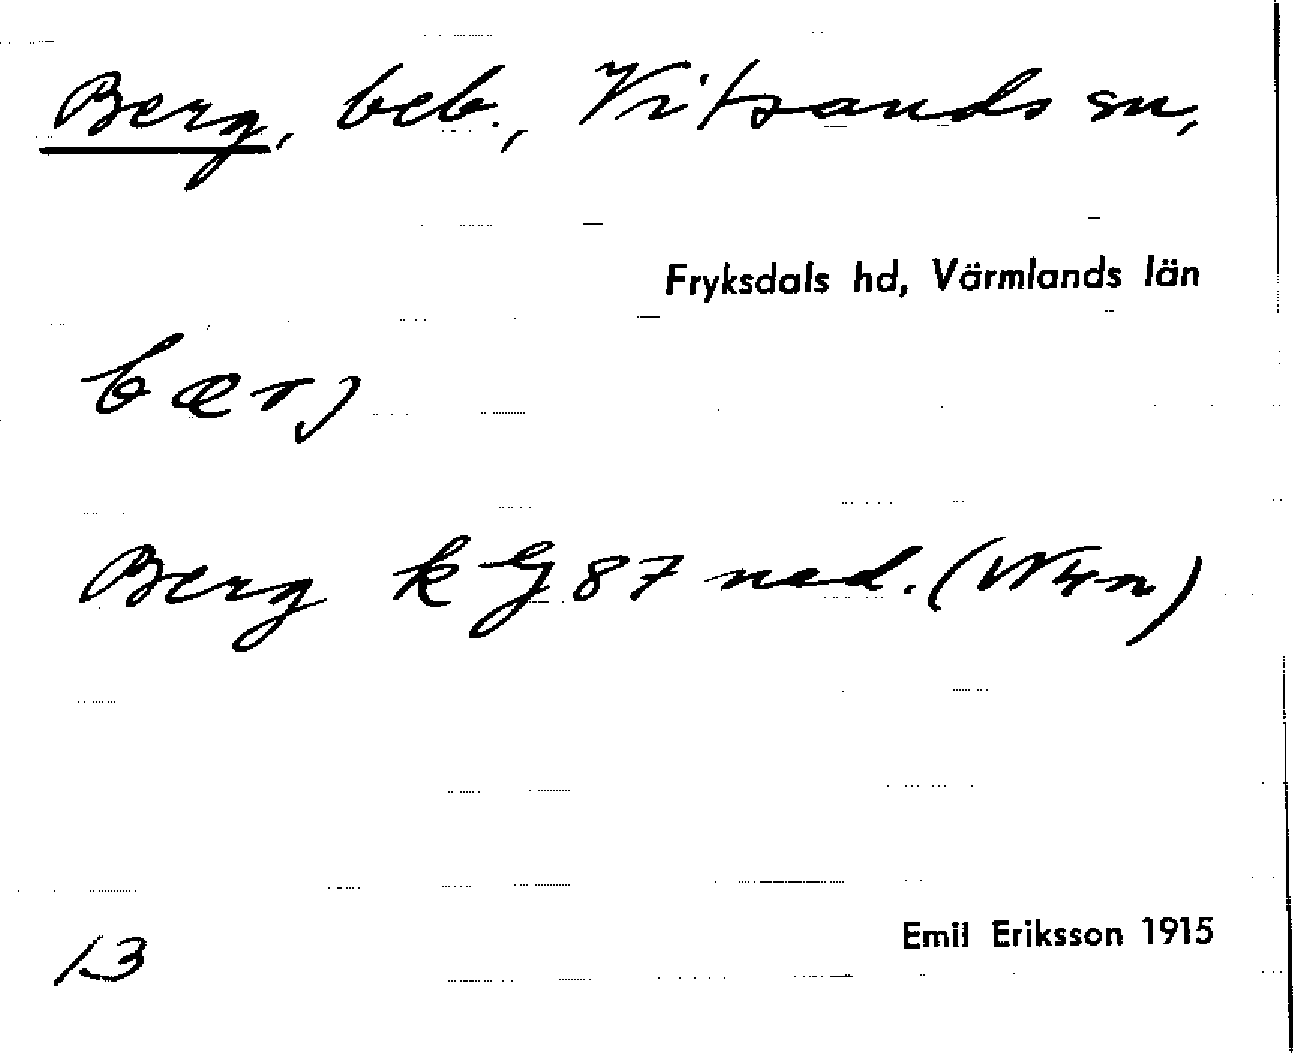 Berg, beb., Vitsands sn,
Fryksdals hd, Värmlands län
bærj
Berg k GJ 87 ned.
13
Emil Eriksson 1915